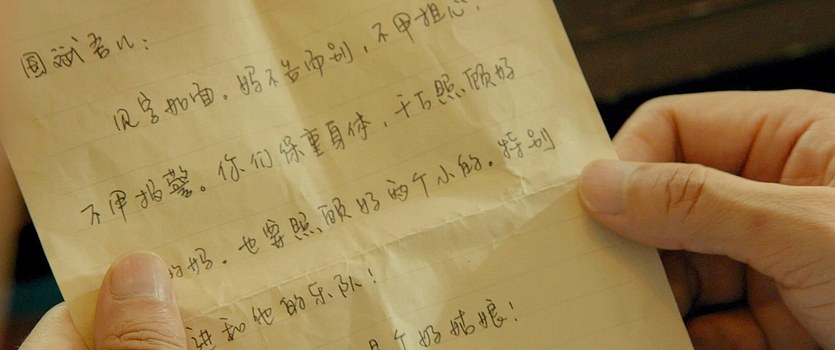 国斌吾儿：
见字如面。妈不告而别，不用担心，
不用报警。你们保重身体，千万照顾好
的妈。也要照顾好两个小的。特别
进和他的乐队！
个好姑娘！